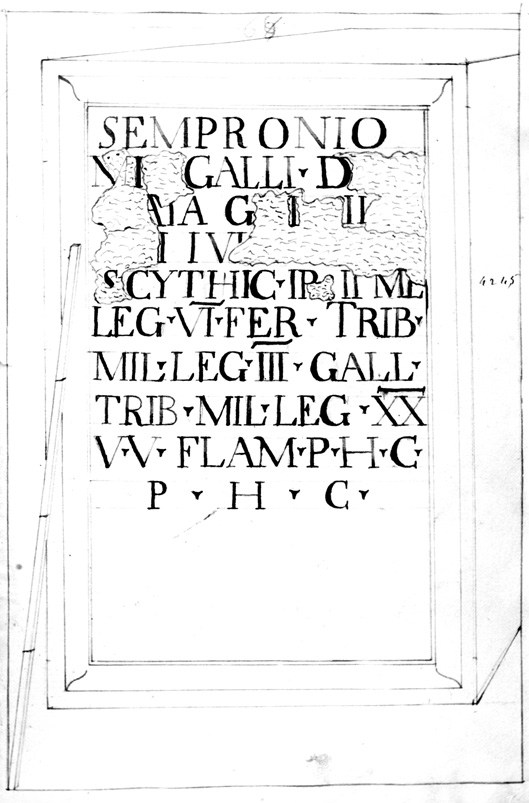 SEMPRONIO
GALLI · D
MA G I II
I IVI
SCYTHIC · IP II MIL
LEG · VI · FER · TRIB ·
MIL · LEG · III · GALL ·
TRIB · MIL · LEG · XX
V · V · FLAM · P · H · C ·
P · H · C ·
4245